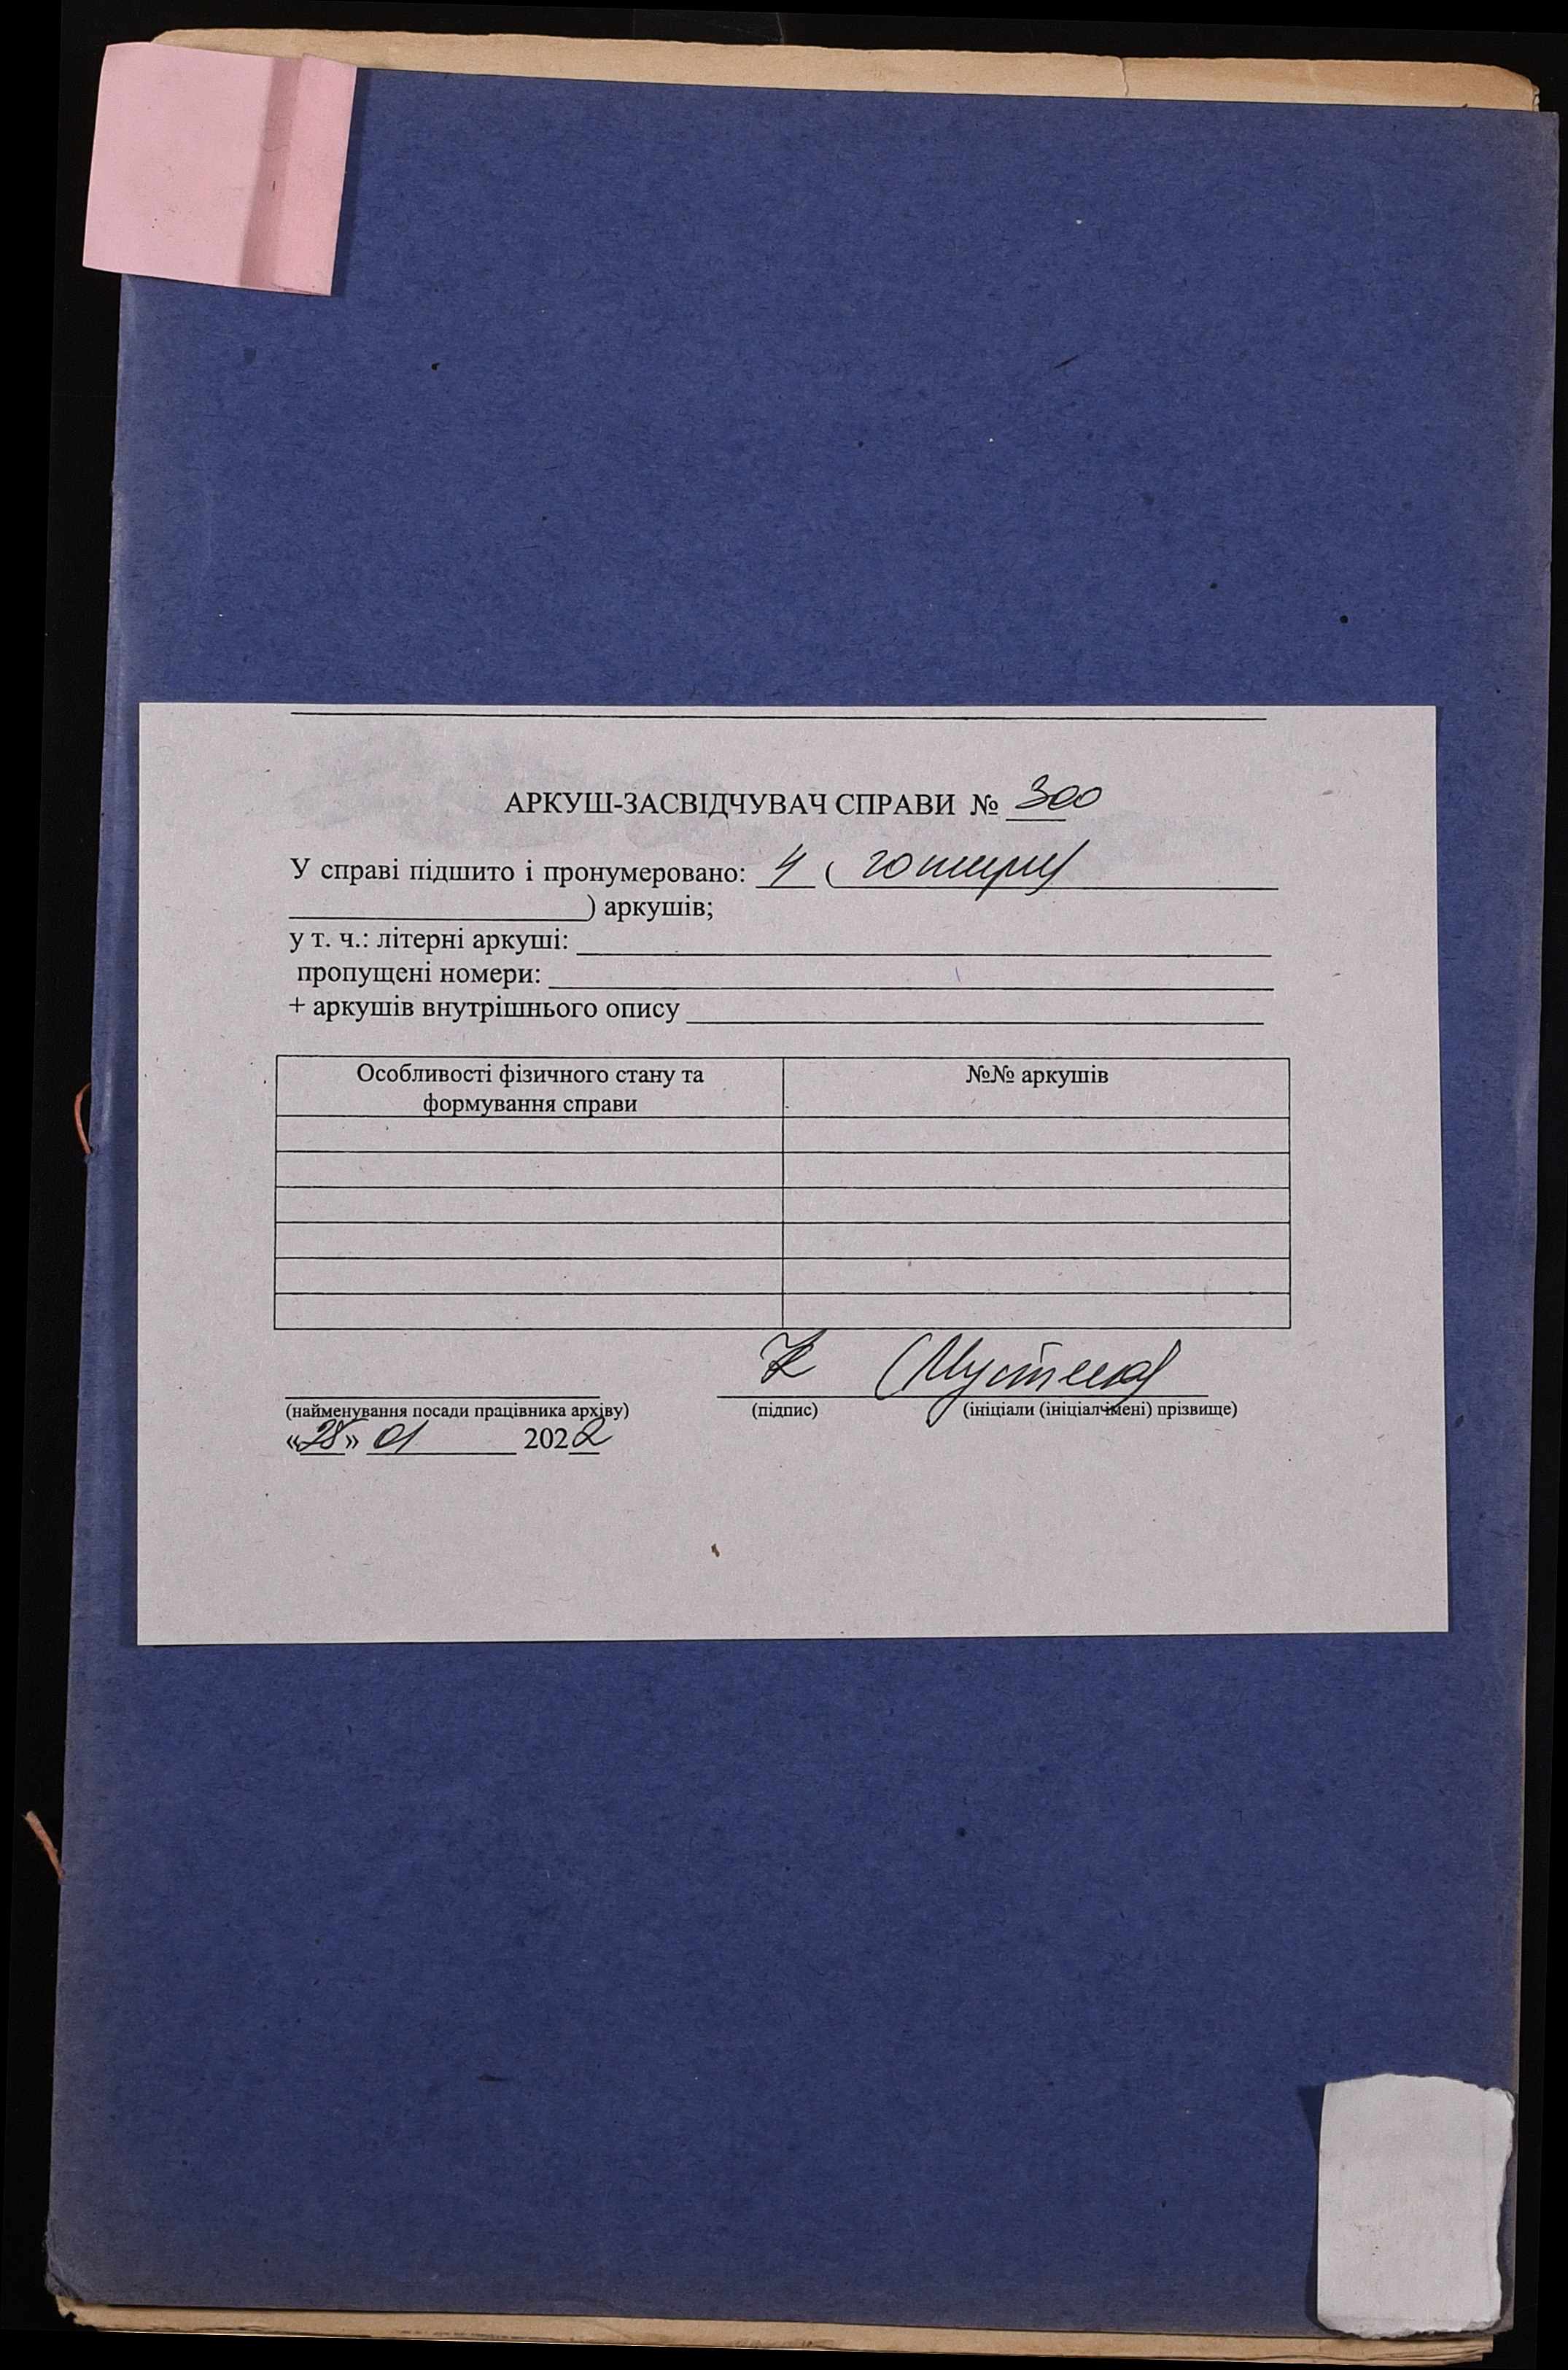 АРКУШ-ЗАСВІДЧУВАЧ СПРАВИ № 300
У справі підшито і пронумеровано: 4 ( чотири
) аркушів;
у т. ч.: літерні аркуші:
пропущені номери:
+ аркушів внутрішнього опису
Особливості фізичного стану та формування справи
№№ аркушів
(найменування посади працівника архіву)
(підпис)
(ініціали (ініціал імені) прізвище)
«28» 01 2022